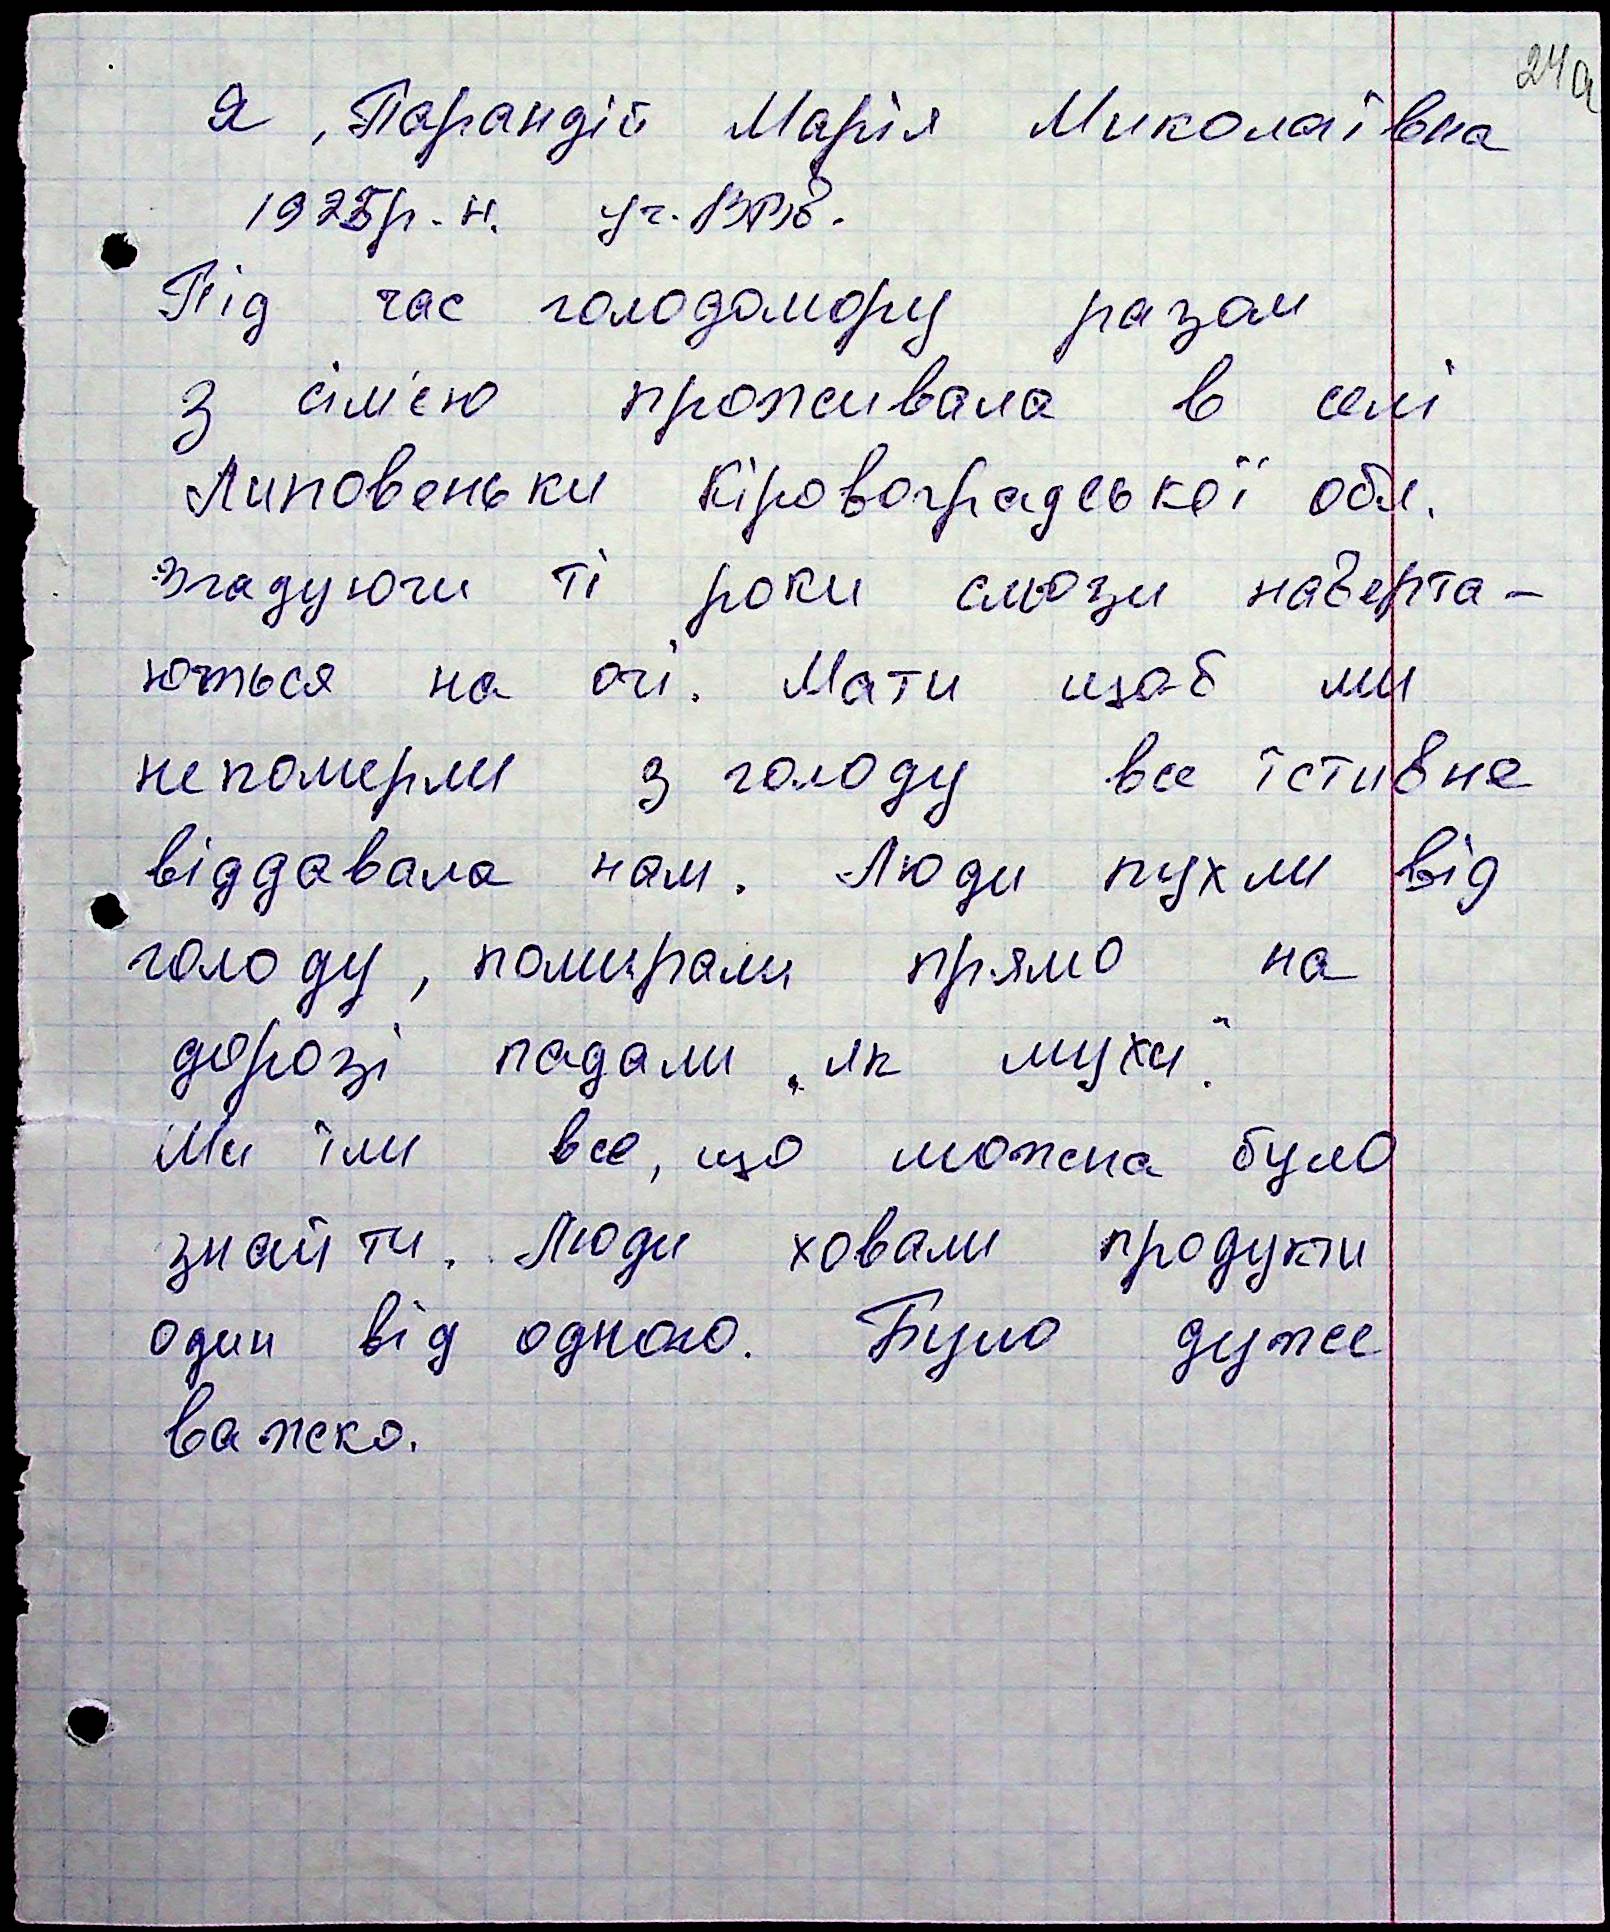 24а
Я, Парандій Марія Миколаївна
1925р.н. уч. ВВВ.
Під час голодомору разом
з сім'єю проживала в селі
Липовеньки Кіровоградської обл.
Згадуючи ті роки сльози наверта-
ються на очі. Мати щоб ми
не померли з голоду все їстивне
віддавала нам. Люди пухли від
голоду, помирали прямо на
дорозі падали „як мухи".
Ми їли все, що можна було
знайти. Люди ховали продукти
один від одного. Було дуже
важко.